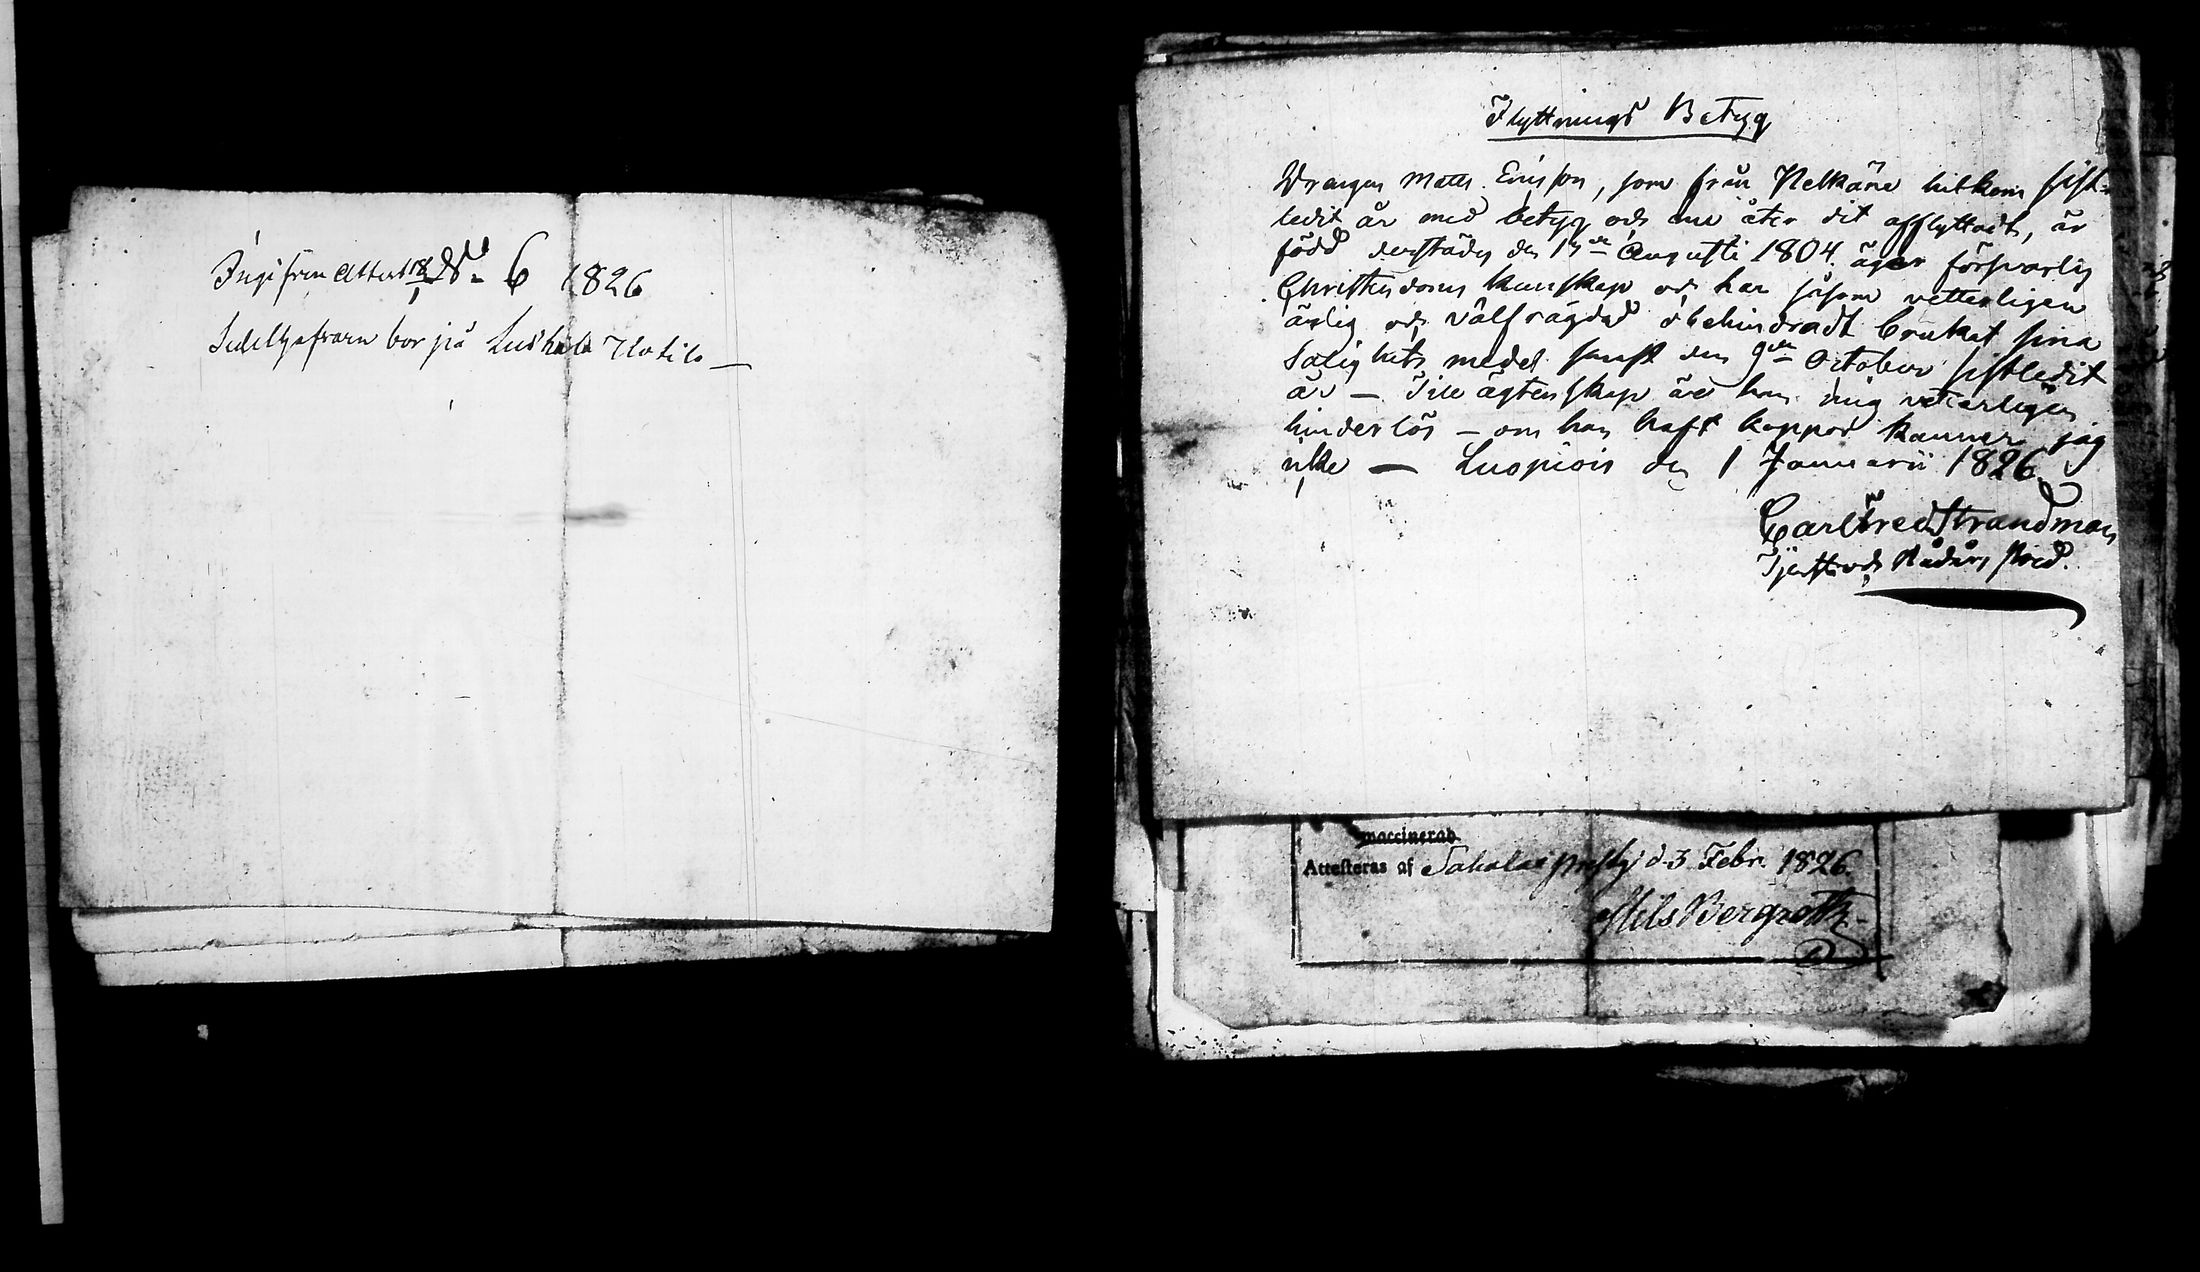 6 1826
bor på
Flyttnings Betyg
Drängen Matts Ericsson, som från Pelkäne hitkom sist-
ledit år med betyg och nu åter dit afflyttadt, är
född derstädes den Augusti 1804. äger försvarlig
Christendoms kunskap och har såsom vetterligen
ärlig och välfrägdad obehindradt brukat sina
Salighets medel sanst den 9de October sistledit
år — Till ägtenskap är han mig veterligen
hinderlös — om han haft koppor känner jag
icke — Luopiois den 1 Januarii 1826
Carl Fred Strandman
vaccinerad.
Attesteras af Sahalax d. 3 Febr. 1826.
Nils Bergroth